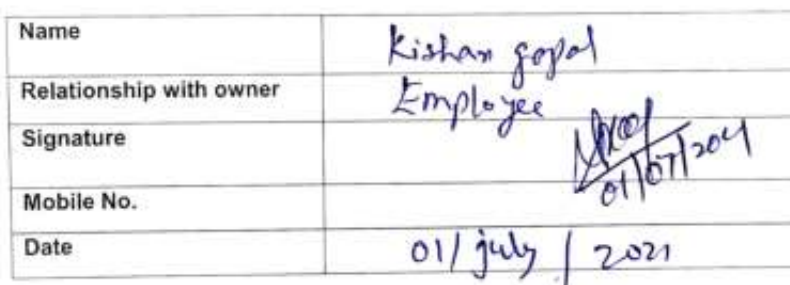 Name Kishan gopal
Relationship with owner Employee
Signature
01/07/2021
Mobile No.
Date 01/july/2021